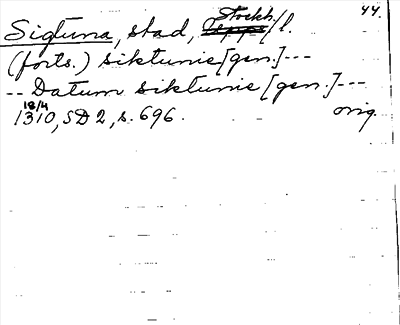 44.
Sigtuna, stad, Stockh./l.
(forts.) siktunie [gen.] ---
-- Datum siktunie [gen.] ---
18/4
1310, SD 2, s. 696. orig.